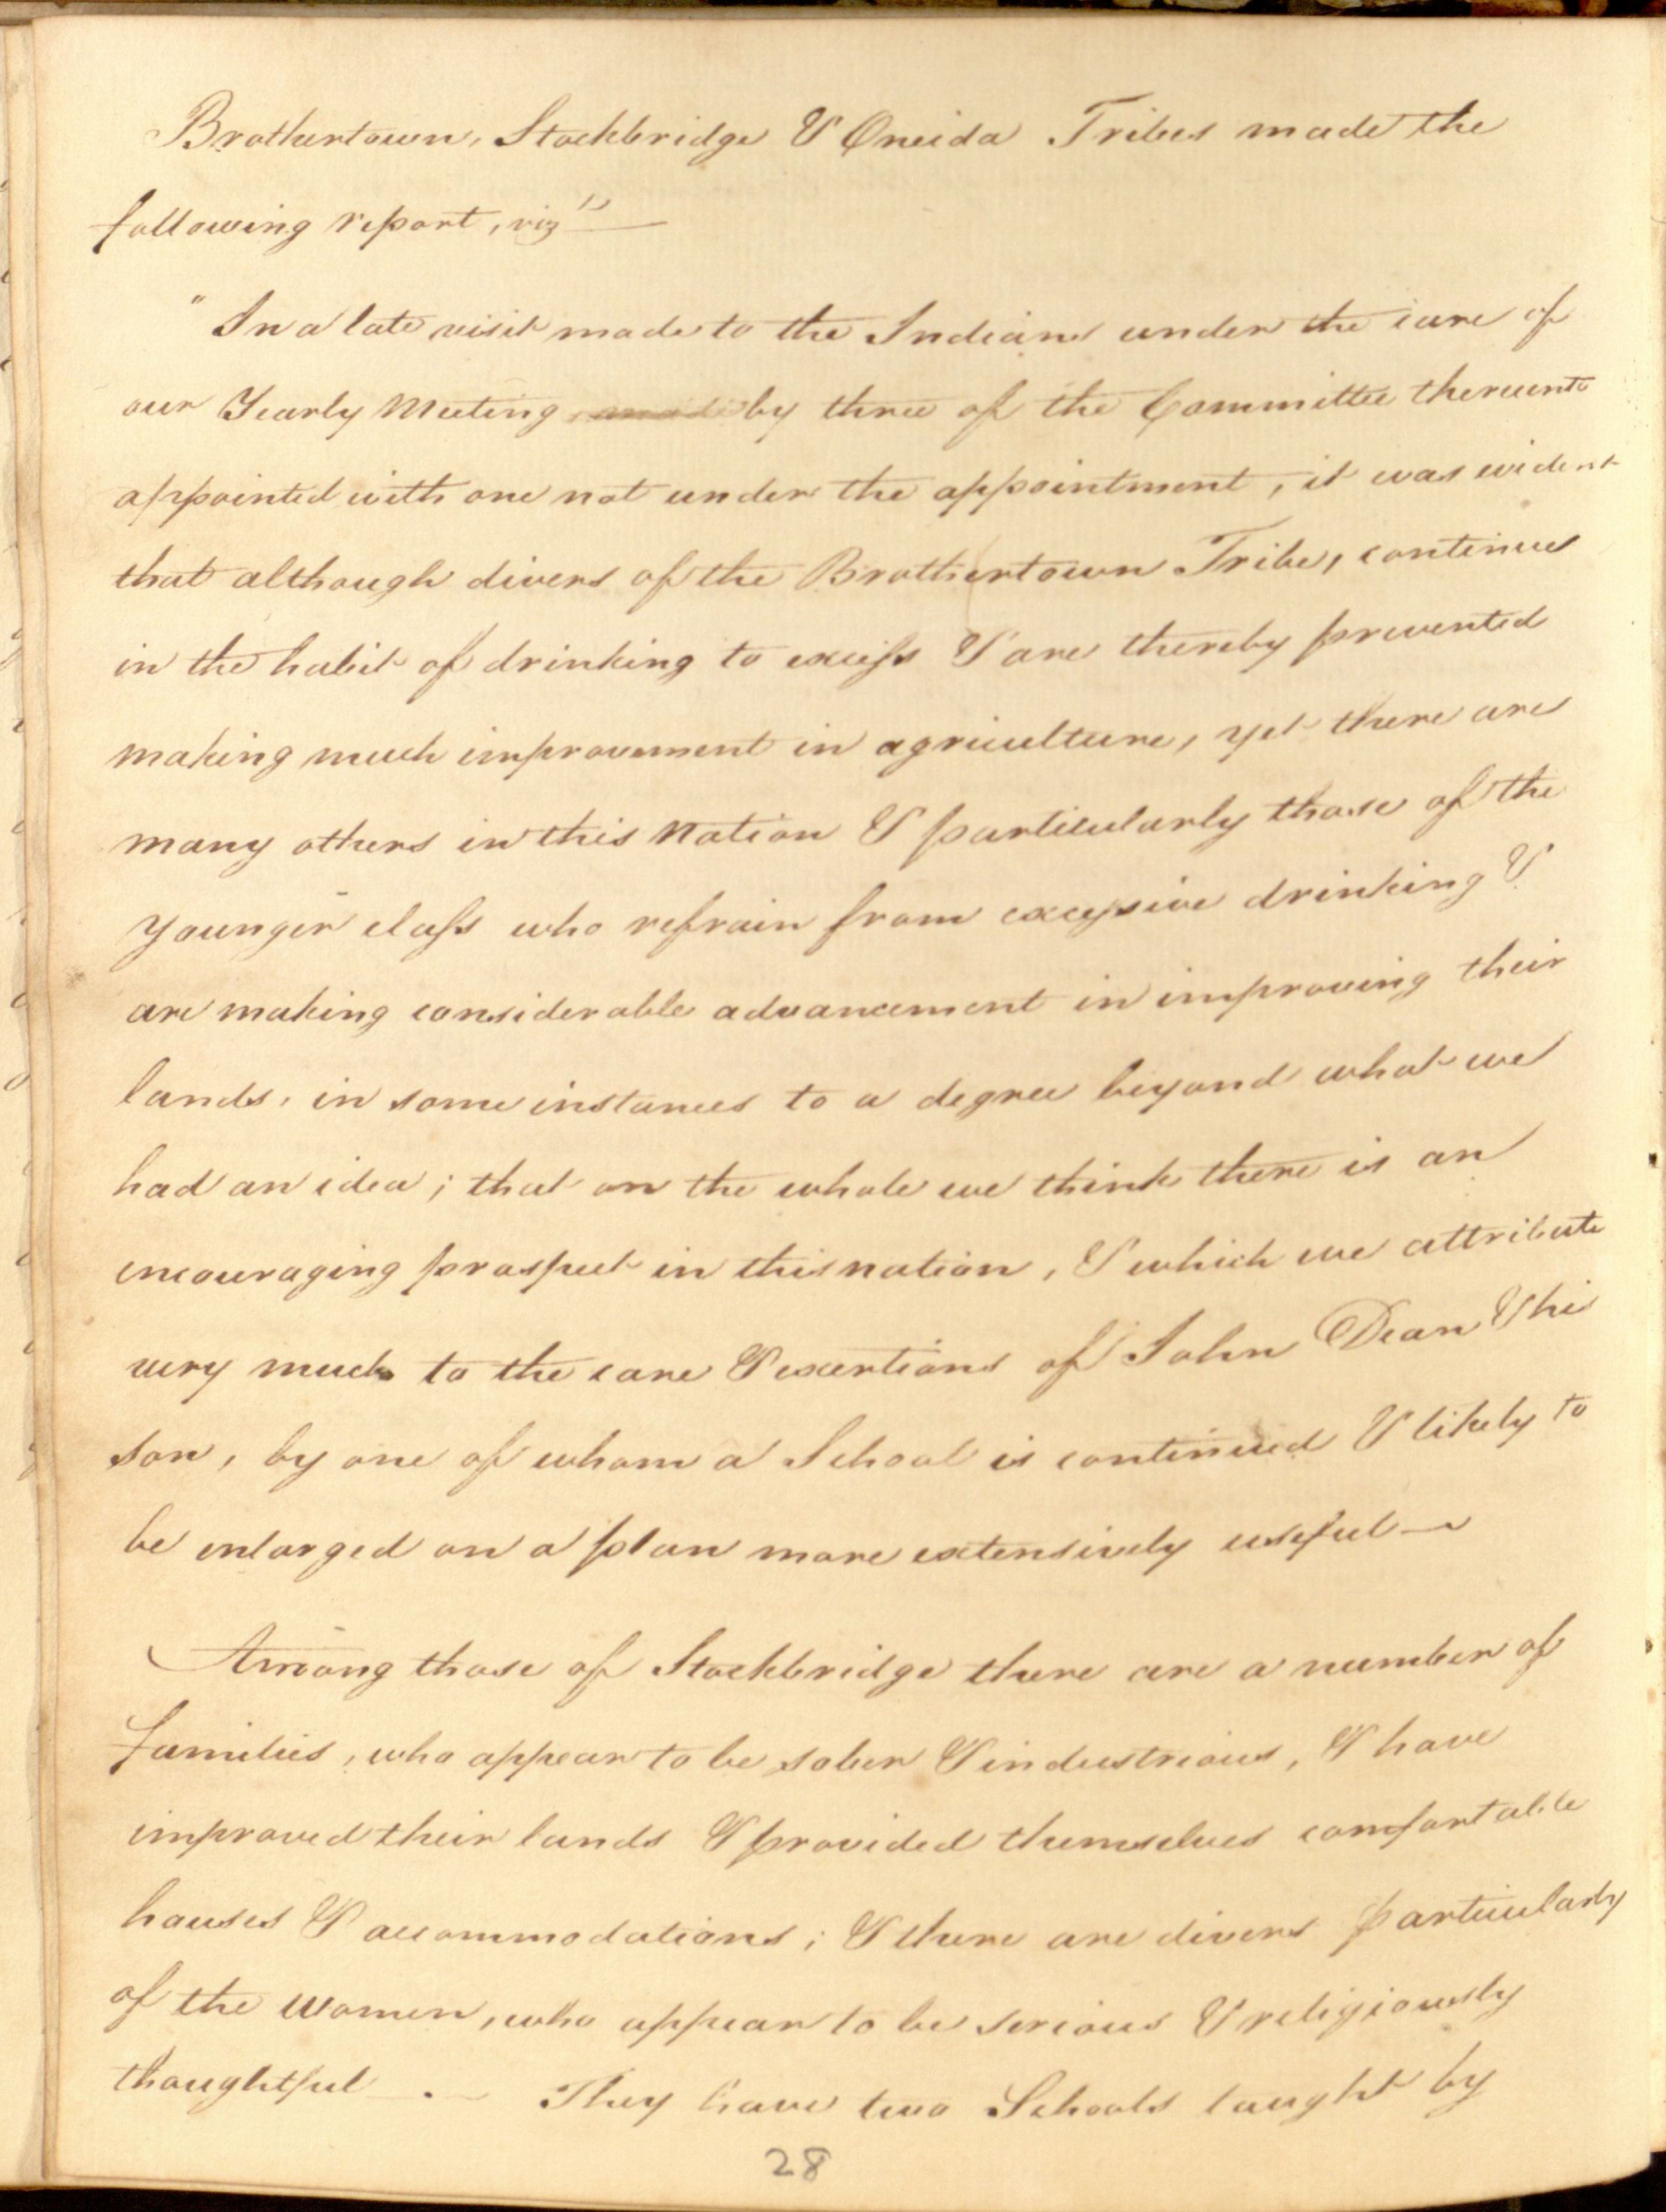 Brothertown, Stockbridge & Oneida Tribes made the
following report, viz^t —
"In a late visit made to the Indians under the care of
our Yearly Meeting, by three of the Committee thereunto
appointed with one not under the appointment, it was evident
that although divers of the Brothertown Tribe, continues
in the habit of drinking to excess & are thereby prevented
making much improvement in agriculture, yet there are
many others in this Nation & particularly those of the
younger class who refrain from excessive drinking &
are making considerable advancement in improving their
lands, in some instances to a degree beyond what we
had an idea; that on the whole we think there is an
encouraging prospect in this nation, & which we attribute
very much to the care & exertions of John Dean & his
son, by one of whom a School is continued & likely to
be enlarged on a plan more extensively useful —
Among those of Stockbridge there are a number of
families, who appear to be sober & industrious, & have
improved their lands & provided themselves comfortable
houses & accommodations; & there are divers particularly
of the Women, who appear to be serious & religiously
thoughtful . — They have two Schools taught by
28